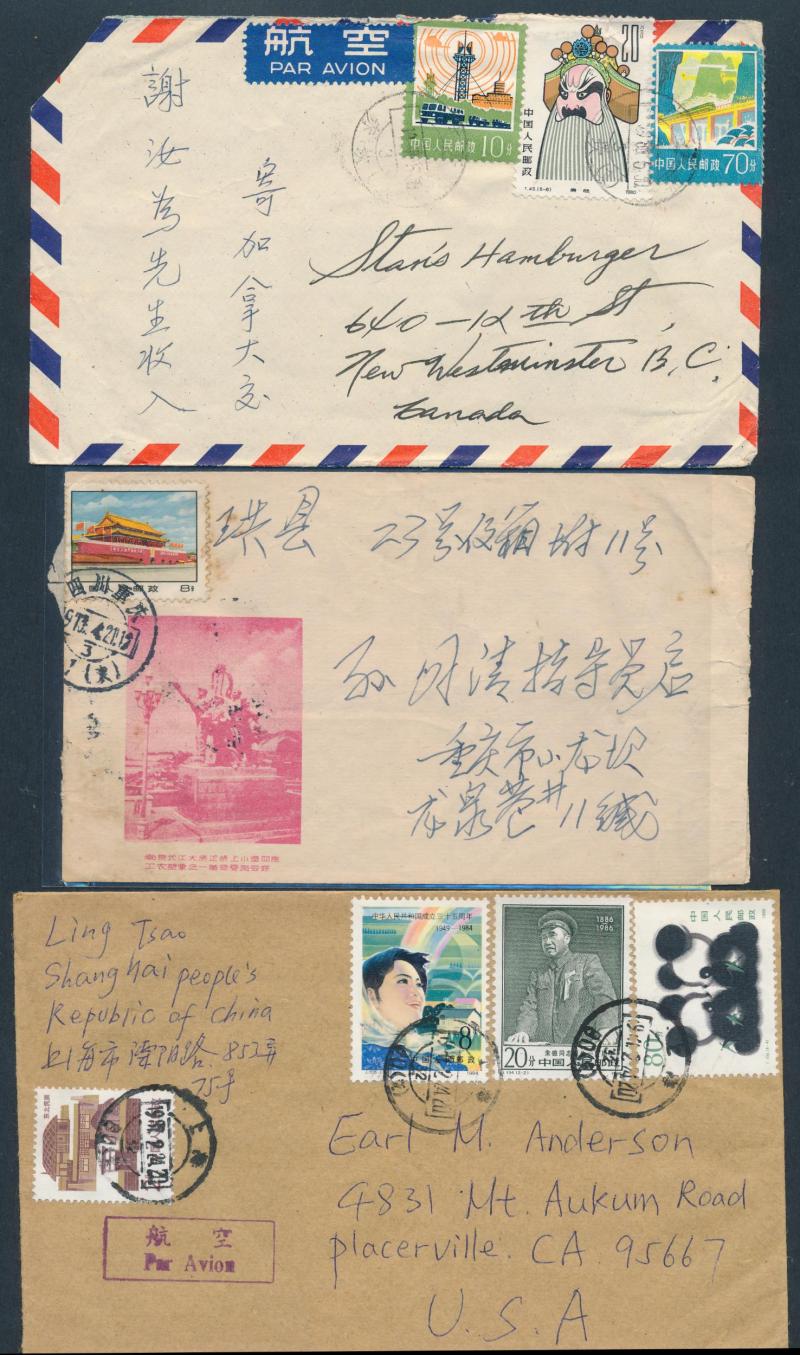 航空
PAR AVION
中国人民邮政 10分
20分
中国人民邮政
T.45.(8-6)
1980
中国人民邮政 70分
謝汝為先生收入
寄加拿大交
Stan's Hamburger
640-12th St,
New Westminster B,C,
Canada
8分
四川重庆
珙县 23号信箱附11号
孙明清指导员启
重庆市小龙坎
龙泉巷井11线
Ling Tsao
Shanghai people's
Republic of China
上海市溧阳路 852弄
75号
中华人民共和国成立三十五周年
1949-1984
8分
中国人民邮政
1886
1986
朱德同志
20分 中国人民邮政
J.134.(2-2)
中国人民邮政
8分
上海
航空
Par Avion
Earl M. Anderson
4831 Mt. Aukum Road
placerville. CA 95667
U.S.A